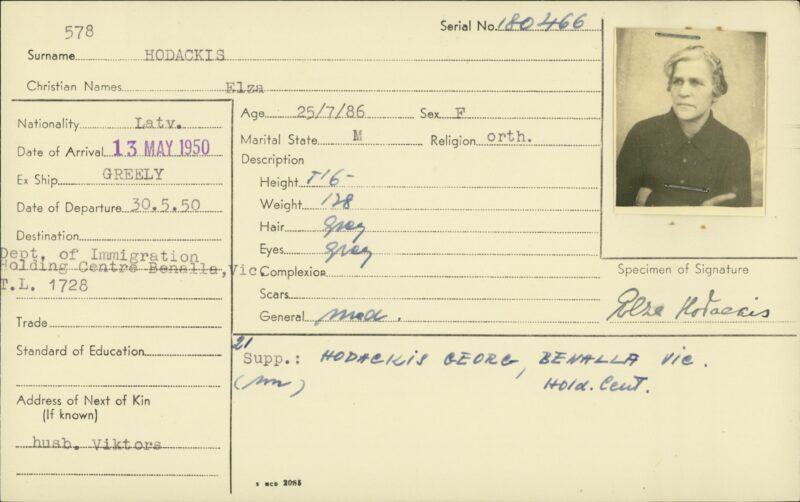 578
Serial No. 180466
Surname HODACKIS
Christian Names Elza
Nationality Latv.
Date of Arrival 13 MAY 1950
Ex Ship GREELY
Date of Departure 30.5.50
Destination
Dept. of Immigration
Holding Centre Benalla, Vic.
T.L. 1728
Trade
Standard of Education
Address of Next of Kin
(If known)
husb. Viktors
Age 25/7/86 Sex F
Marital State M Religion orth.
Description
Height
Weight 128
Hair Gray
Eyes Gray
Complexion
Scars
General med.
Specimen of Signature
Elza Hodackis
21
Supp.: HODACKIS GEORG, BENALLA VIC.
Hold. Cent.
S MCD 2085